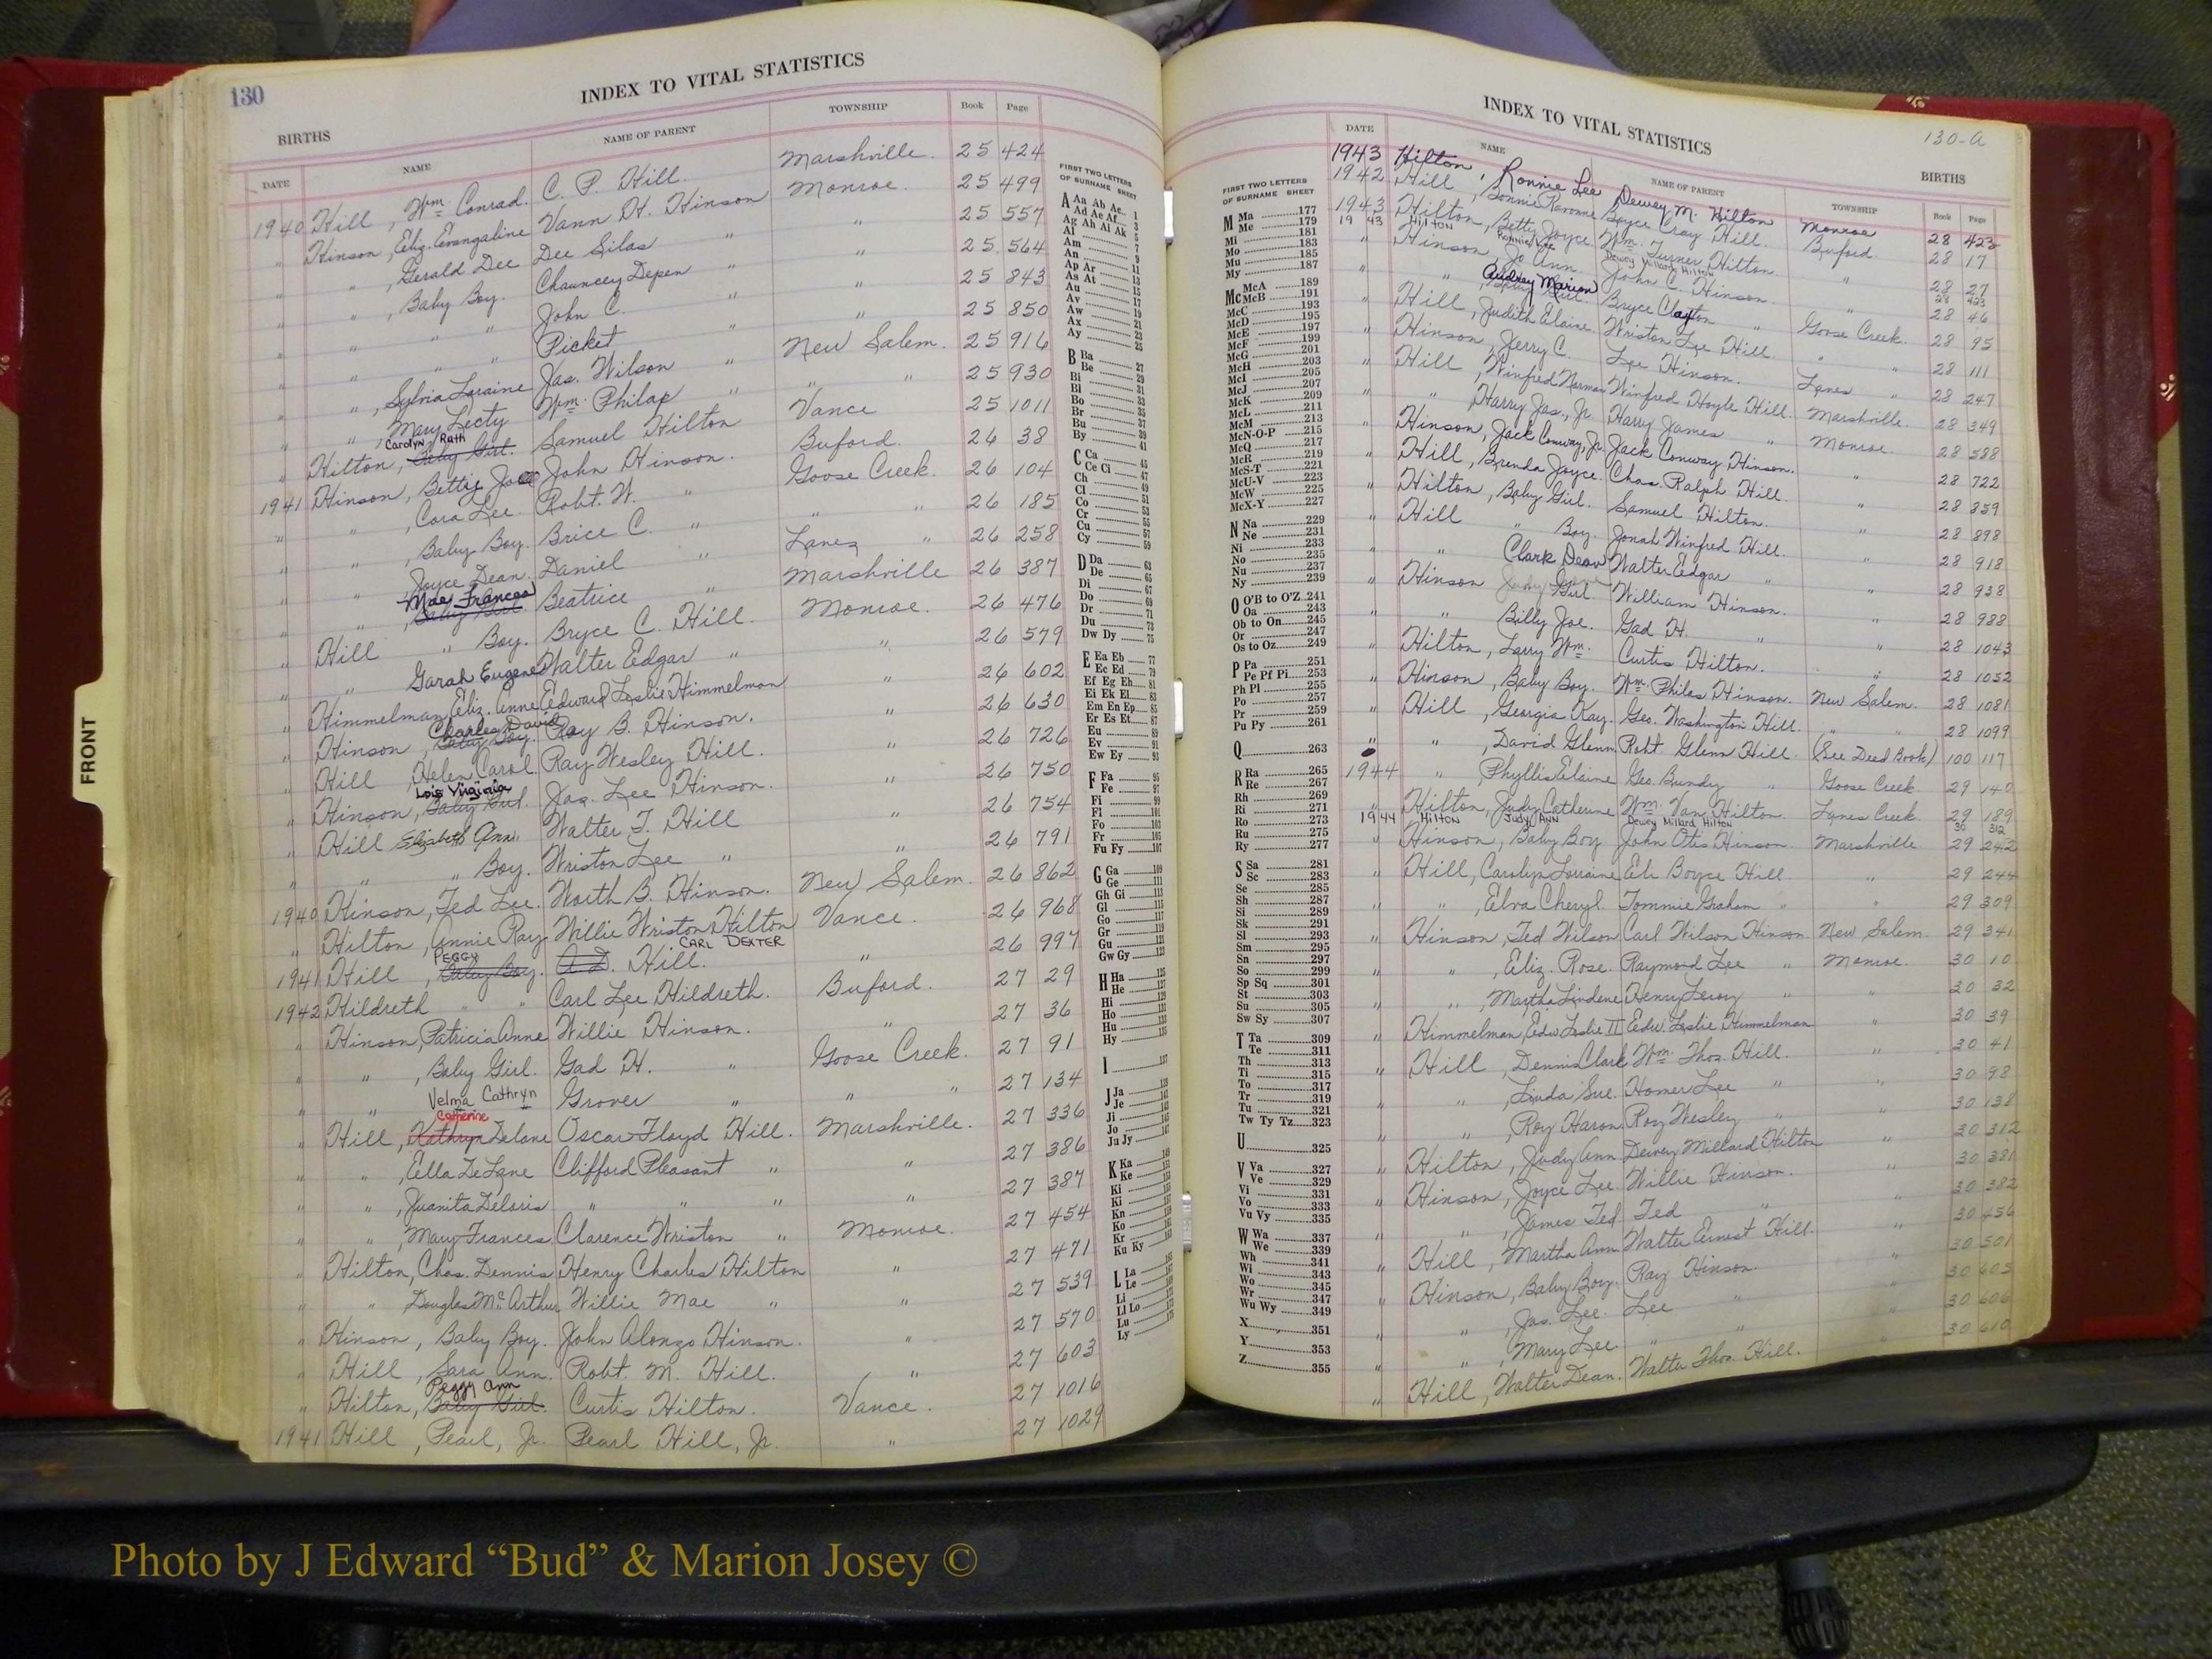 130
INDEX TO VITAL STATISTICS
BIRTHS
DATE NAME NAME OF PARENT TOWNSHIP Book Page
1940 Hill, Wm. Conrad. C. P. Hill. Marshville. 25 424
" Hinson, Eliz. Evangaline Vann H. Hinson Monroe. 25 499
" " , Gerald Dee Dee Silas " " 25 557
" " , Baby Boy. Chauncey Depen " " 25 564
" " " John C. " " 25 843
" " " Picket " " 25 850
" " , Sylvia Loraine Jas. Wilson " New Salem. 25 916
" " , Mary Lecty Wm. Philap " " " 25 930
Carolyn Ruth
" Hilton, Baby Girl. Samuel Hilton Vance 25 1011
1941 Hinson, Bettie Jo John Hinson. Buford. 26 38
" " , Cora Lee. Robt. W. " Goose Creek. 26 104
" " , Baby Boy. Brice C. " " " 26 185
" " Joyce Dean. Daniel " Lanes " 26 258
Mae Frances
" " , Baby Girl Beatrice " Marshville 26 387
" Hill " Boy. Bryce C. Hill. Monroe. 26 476
" " Sarah Eugene Walter Edgar " " 26 579
" Himmelman, Eliz. Anne Edward Leslie Himmelman " 26 602
Charles David
" Hinson, Baby Boy. Ray B. Hinson. " 26 630
" Hill, Helen Carol. Ray Wesley Hill. " 26 726
Lois Virginia
" Hinson, Baby Girl. Jas. Lee Hinson. " 26 750
" Hill Elizabeth Ann. Walter T. Hill " 26 754
" " Boy. Wriston Lee " " 26 791
1940 Hinson, Ted Lee. Worth B. Hinson. New Salem. 26 862
" Hilton, Annie Ray. Willie Wriston Hilton Vance. 26 968
PEGGY CARL DEXTER
1941 Hill, Baby Boy. A. D. Hill. " 26 997
1942 Hildreth " " Carl Lee Hildreth. Buford. 27 29
" Hinson, Patricia Anne Willie Hinson. " 27 36
" " , Baby Girl. Gad H. " Goose Creek. 27 91
Velma Cathryn
" " Grover " " " 27 134
Catherine
" Hill, Kathryn Delane Oscar Floyd Hill. Marshville. 27 336
" " , Ella DeLane Clifford Pleasant " " 27 386
" " , Juanita Deloris " " " " 27 387
" " , Mary Frances Clarence Wriston " Monroe. 27 454
" Hilton, Chas. Dennis Henry Charles Hilton " 27 471
" " Douglas McArthur Willie Mae " " 27 539
" Hinson, Baby Boy. John Alonzo Hinson. " 27 570
" Hill, Sara Ann. Robt. M. Hill. " 27 603
Peggy Ann
" Hilton, Baby Girl. Curtis Hilton. Vance. 27 1016
1941 Hill, Pearl, Jr. Pearl Hill, Jr. " 27 1029
FIRST TWO LETTERS
OF SURNAME SHEET
A Aa Ab Ac 1
Ad Ae Af 3
Ag Ah Ai Ak 5
Al 7
Am 9
An
Ap Ar 11
As At 13
Au 15
Av 17
Aw 21
Ax 23
Ay 25
B Ba 27
Be 29
Bi 31
Bl 33
Bo 35
Br 37
Bu 39
By 41
C Ca 45
Ce Ci
Ch 47
Cl 49
Co 51
Cr 53
Cu 57
Cy 59
D Da 63
De 65
Di 67
Do 69
Dr 71
Du 73
Dw Dy 75
E Ea Eb 77
Ec Ed 79
Ef Eg Eh 81
Ei Ek El 83
Em En Ep 85
Er Es Et 87
Eu 89
Ev 91
Ew Ey 93
F Fa 95
Fe 97
Fi 99
Fl 101
Fo 103
Fr 105
Fu Fy 107
G Ga 109
Ge 111
Gh Gi 113
Gl 115
Go 117
Gr 119
Gu 121
Gw Gy 123
H Ha 125
He 127
Hi
Ho
Hu
Hy
I
J Ja
Je
Ji
Jo
Ju Jy
K Ka
Ke
Ki
Kn
Ko
Kr
Ku Ky
L La
Le
Li
Ll Lo
Lu
Ly
FRONT
INDEX TO VITAL STATISTICS
130-a
BIRTHS
DATE NAME NAME OF PARENT TOWNSHIP Book Page
1943 Hilton, Ronnie Lee Dewey M. Hilton Monroe 28 423
1942 Hill, Sonnie Boyce Cray Hill. Buford. 28 17
1943 Hilton, Betty Joyce Wm. Turner Hilton. " 28 27
19 43 HILTON Ronnie Lee Dewey Millard Hilton 28 423
" Hinson, Jo Ann. John C. Hinson. " 28 46
Audrey Marion
" " , Baby Girl. Bryce Clayton " Goose Creek. 28 95
" Hill, Judith Elaine Wriston Lee Hill. " " 28 111
" Hinson, Jerry C. Lee Hinson. Lanes " 28 247
" Hill, Winfred Norman Winfred Hoyle Hill. Marshville. 28 349
" " Harry Jas., Jr. Harry James " Monroe. 28 588
" Hinson, Jack Conway, Jr. Jack Conway Hinson. " 28 722
" Hill, Brenda Joyce. Chas. Ralph Hill. " 28 859
" Hilton, Baby Girl. Samuel Hilton. " 28 898
" Hill " Boy. Jonah Winfred Hill. " 28 918
" " Clark Dean Walter Edgar " " 28 938
" Hinson Girl. William Hinson. " 28 988
" " Billy Joe. Gad H. " " 28 1043
" Hilton, Larry Wm. Curtis Hilton. " 28 1052
" Hinson, Baby Boy. Wm. Philes Hinson. New Salem. 28 1081
" Hill, Georgia Kay. Geo. Washington Hill. " " 28 1099
" " , David Glenn. Robt. Glenn Hill. (See Deed Book) 100 117
1944 " Phyllis Elaine Geo. Bundy " Goose Creek. 29 140
" Hilton, Judy Catherine Wm. Van Hilton. Lanes Creek. 29 189
1944 HILTON JUDY ANN Dewey Millard Hilton 30 312
" Hinson, Baby Boy. John Otis Hinson. Marshville 29 242
" Hill, Carolyn Lorraine Eli Boyce Hill. " 29 244
" " , Elva Cheryl. Tommie Graham " " 29 309
" Hinson, Ted Wilson Carl Wilson Hinson. New Salem. 29 341
" " , Eliz. Rose. Raymond Lee " Monroe. 30 10
" " , Martha Lindene Henry Leroy " " 30 32
" Himmelman, Edw. Leslie II Edw. Leslie Himmelman " 30 39
" Hill, Dennis Clark Wm. Thos. Hill. " 30 41
" " , Linda Sue. Homer Lee " " 30 98
" " , Roy Haron Roy Wesley " " 30 138
" Hilton, Judy Ann Dewey Millard Hilton " 30 312
" Hinson, Joyce Lee. Willie Hinson. " 30 381
" " , James Ted Ted " " 30 382
" Hill, Martha Ann Walter Ernest Hill. " 30 456
" Hinson, Baby Boy. Ray Hinson. " 30 501
" " , Jas. Lee Lee " " 30 605
" " , Mary Lee. " " " 30 606
" Hill, Walter Dean. Walter Thos. Hill. " 30 610
FIRST TWO LETTERS
OF SURNAME SHEET
M Ma 177
Me 179
Mi 181
Mo 183
Mu 185
My 187
Mc McA 189
McB 191
McC 193
McD 195
McE 197
McF 199
McG 201
McH 203
McI 205
McJ 207
McK 209
McL 211
McM 213
McN-O-P 215
McQ 217
McR 219
McS-T 221
McU-V 223
McW 225
McX-Y 227
N Na 229
Ne 231
Ni 233
No 235
Nu 237
Ny 239
O O'B to O'Z 241
Oa 243
Ob to On 245
Or 247
Os to Oz 249
P Pa 251
Pe Pf Pi 253
Ph Pl 255
Po 257
Pr 259
Pu Py 261
Q 263
R Ra 265
Re 267
Rh 269
Ri 271
Ro 273
Ru 275
Ry 277
S Sa 281
Sc 283
Se 285
Sh 287
Si 289
Sk 291
Sl 293
Sm 295
Sn 297
So 299
Sp Sq 301
St 303
Su 305
Sw Sy 307
T Ta 309
Te 311
Th 313
Ti 315
To 317
Tr 319
Tu 321
Tw Ty Tz 323
U 325
V Va 327
Ve 329
Vi 331
Vo 333
Vu Vy 335
W Wa 337
We 339
Wh 341
Wi 343
Wo 345
Wr 347
Wu Wy 349
X 351
Y 353
Z 355
Photo by J Edward “Bud” & Marion Josey ©